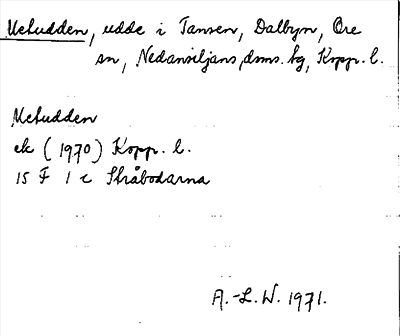 Metudden, udde i Tansen, Dalbyn, Ore
sn, Nedansiljans dms. hg, Kopp. l.
Metudden
ek (1970) Kopp. l.
15 F 1 c Skråbodarna
A.-L. W. 1971.